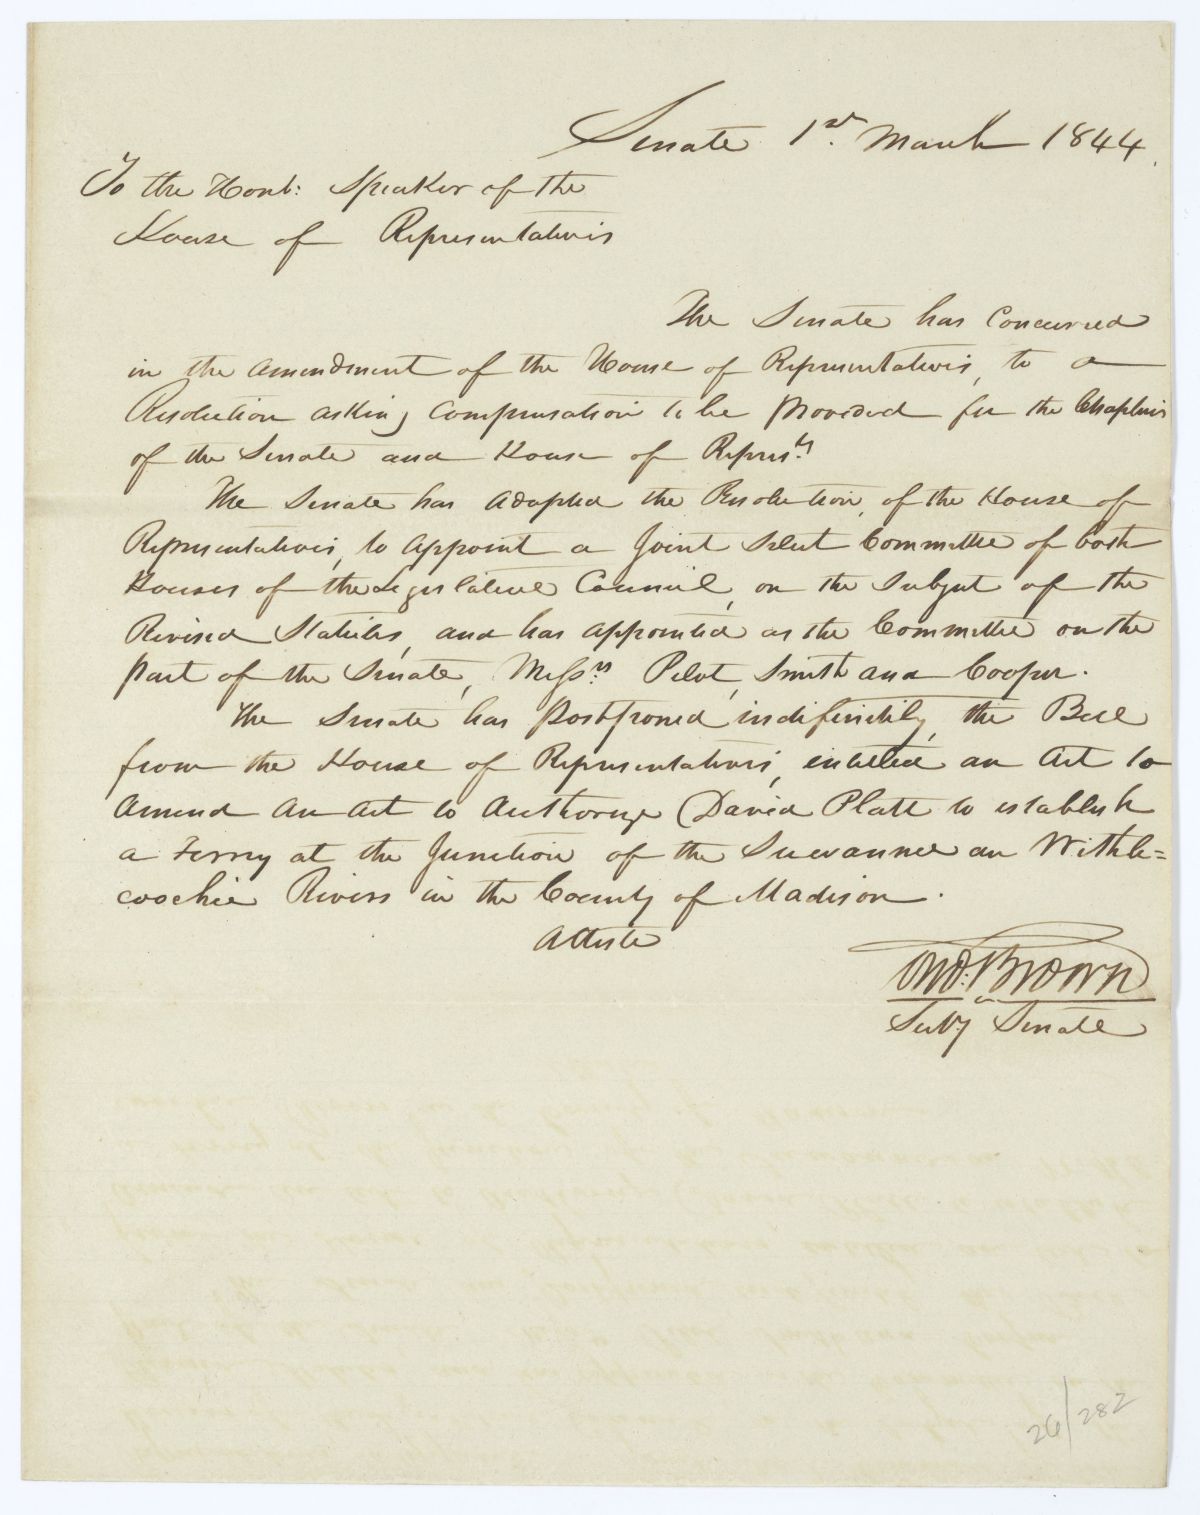 Senate 1st. March 1844.
To the Honl: Speaker of the
House of Representatives
The Senate has Concurred
in the amendment of the House of Representatives, to a
Resolution asking compensation to be Provided for the Chaplins
of the Senate and House of Represts.
The Senate has adopted the Resolution, of the House of
Representatives, to appoint a Joint Select Committee of both
Houses of the Legislative Council, on the Subject of the
Revised Statutes, and has appointed as the Committee on the
part of the Senate, Messrs. Pelot, Smith and Cooper.
The Senate has Postponed indifinitily, the Bill
from the House of Representatives, entitled an Act to
Amend An Act to Authorize David Platt to establish
a Ferry at the Junction of the Suwannee an Withla=
coochie Rivers in the County of Madison.
Atteste
Thos. Brown
Secty Senate
26/282